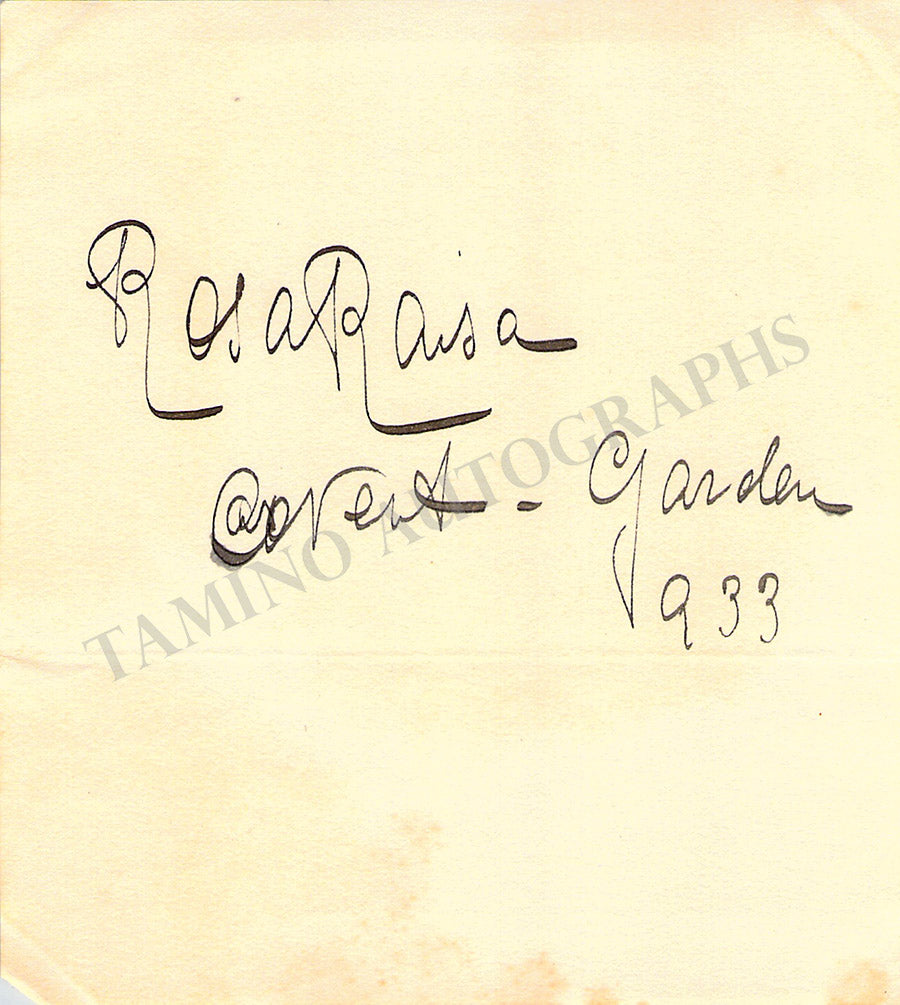 Rosa Raisa
Covent - Garden
1933
TAMINO AUTOGRAPHS